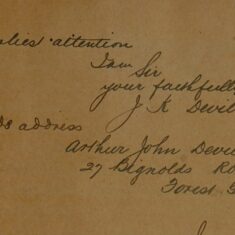 attention
I am Sir
your faithfully
J K Devil
address
Arthur John Devi
27 Bignolds Ro
Forest G